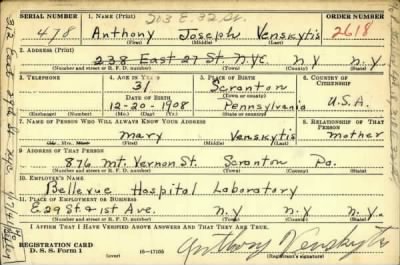 SERIAL NUMBER 1. NAME (Print) 203 E. 32 St. ORDER NUMBER
478 Anthony Joseph Venskytis 2618
(First) (Middle) (Last)
2. ADDRESS (Print)
238 East 27 St. N.Y.C. N Y N.Y.
(Number and street or R. F. D. number) (Town) (County) (State)
3. TELEPHONE 4. AGE IN YEARS 5. PLACE OF BIRTH 6. COUNTRY OF CITIZENSHIP
31 Scranton
DATE OF BIRTH (Town or county)
12-20-1908 Pennsylvania U.S.A.
(Exchange) (Number) (Mo.) (Day) (Yr.) (State or country)
7. NAME OF PERSON WHO WILL ALWAYS KNOW YOUR ADDRESS 8. RELATIONSHIP OF THAT PERSON
Mary Venskytis mother
(Mr., Mrs., Miss) (First) (Middle) (Last)
9. ADDRESS OF THAT PERSON
876 Mt. Vernon St. Scranton Pa.
(Number and street or R. F. D. number) (Town) (County) (State)
10. EMPLOYER'S NAME
Bellevue Hospital Laboratory
11. PLACE OF EMPLOYMENT OR BUSINESS
E 29 St & 1st Ave. N.Y N.Y. N.Y.
(Number and street or R. F. D. number) (Town) (County) (State)
I AFFIRM THAT I HAVE VERIFIED ABOVE ANSWERS AND THAT THEY ARE TRUE.
REGISTRATION CARD
D. S. S. Form 1 (over) 16-17105 Anthony Venskytis
(Registrant's signature)